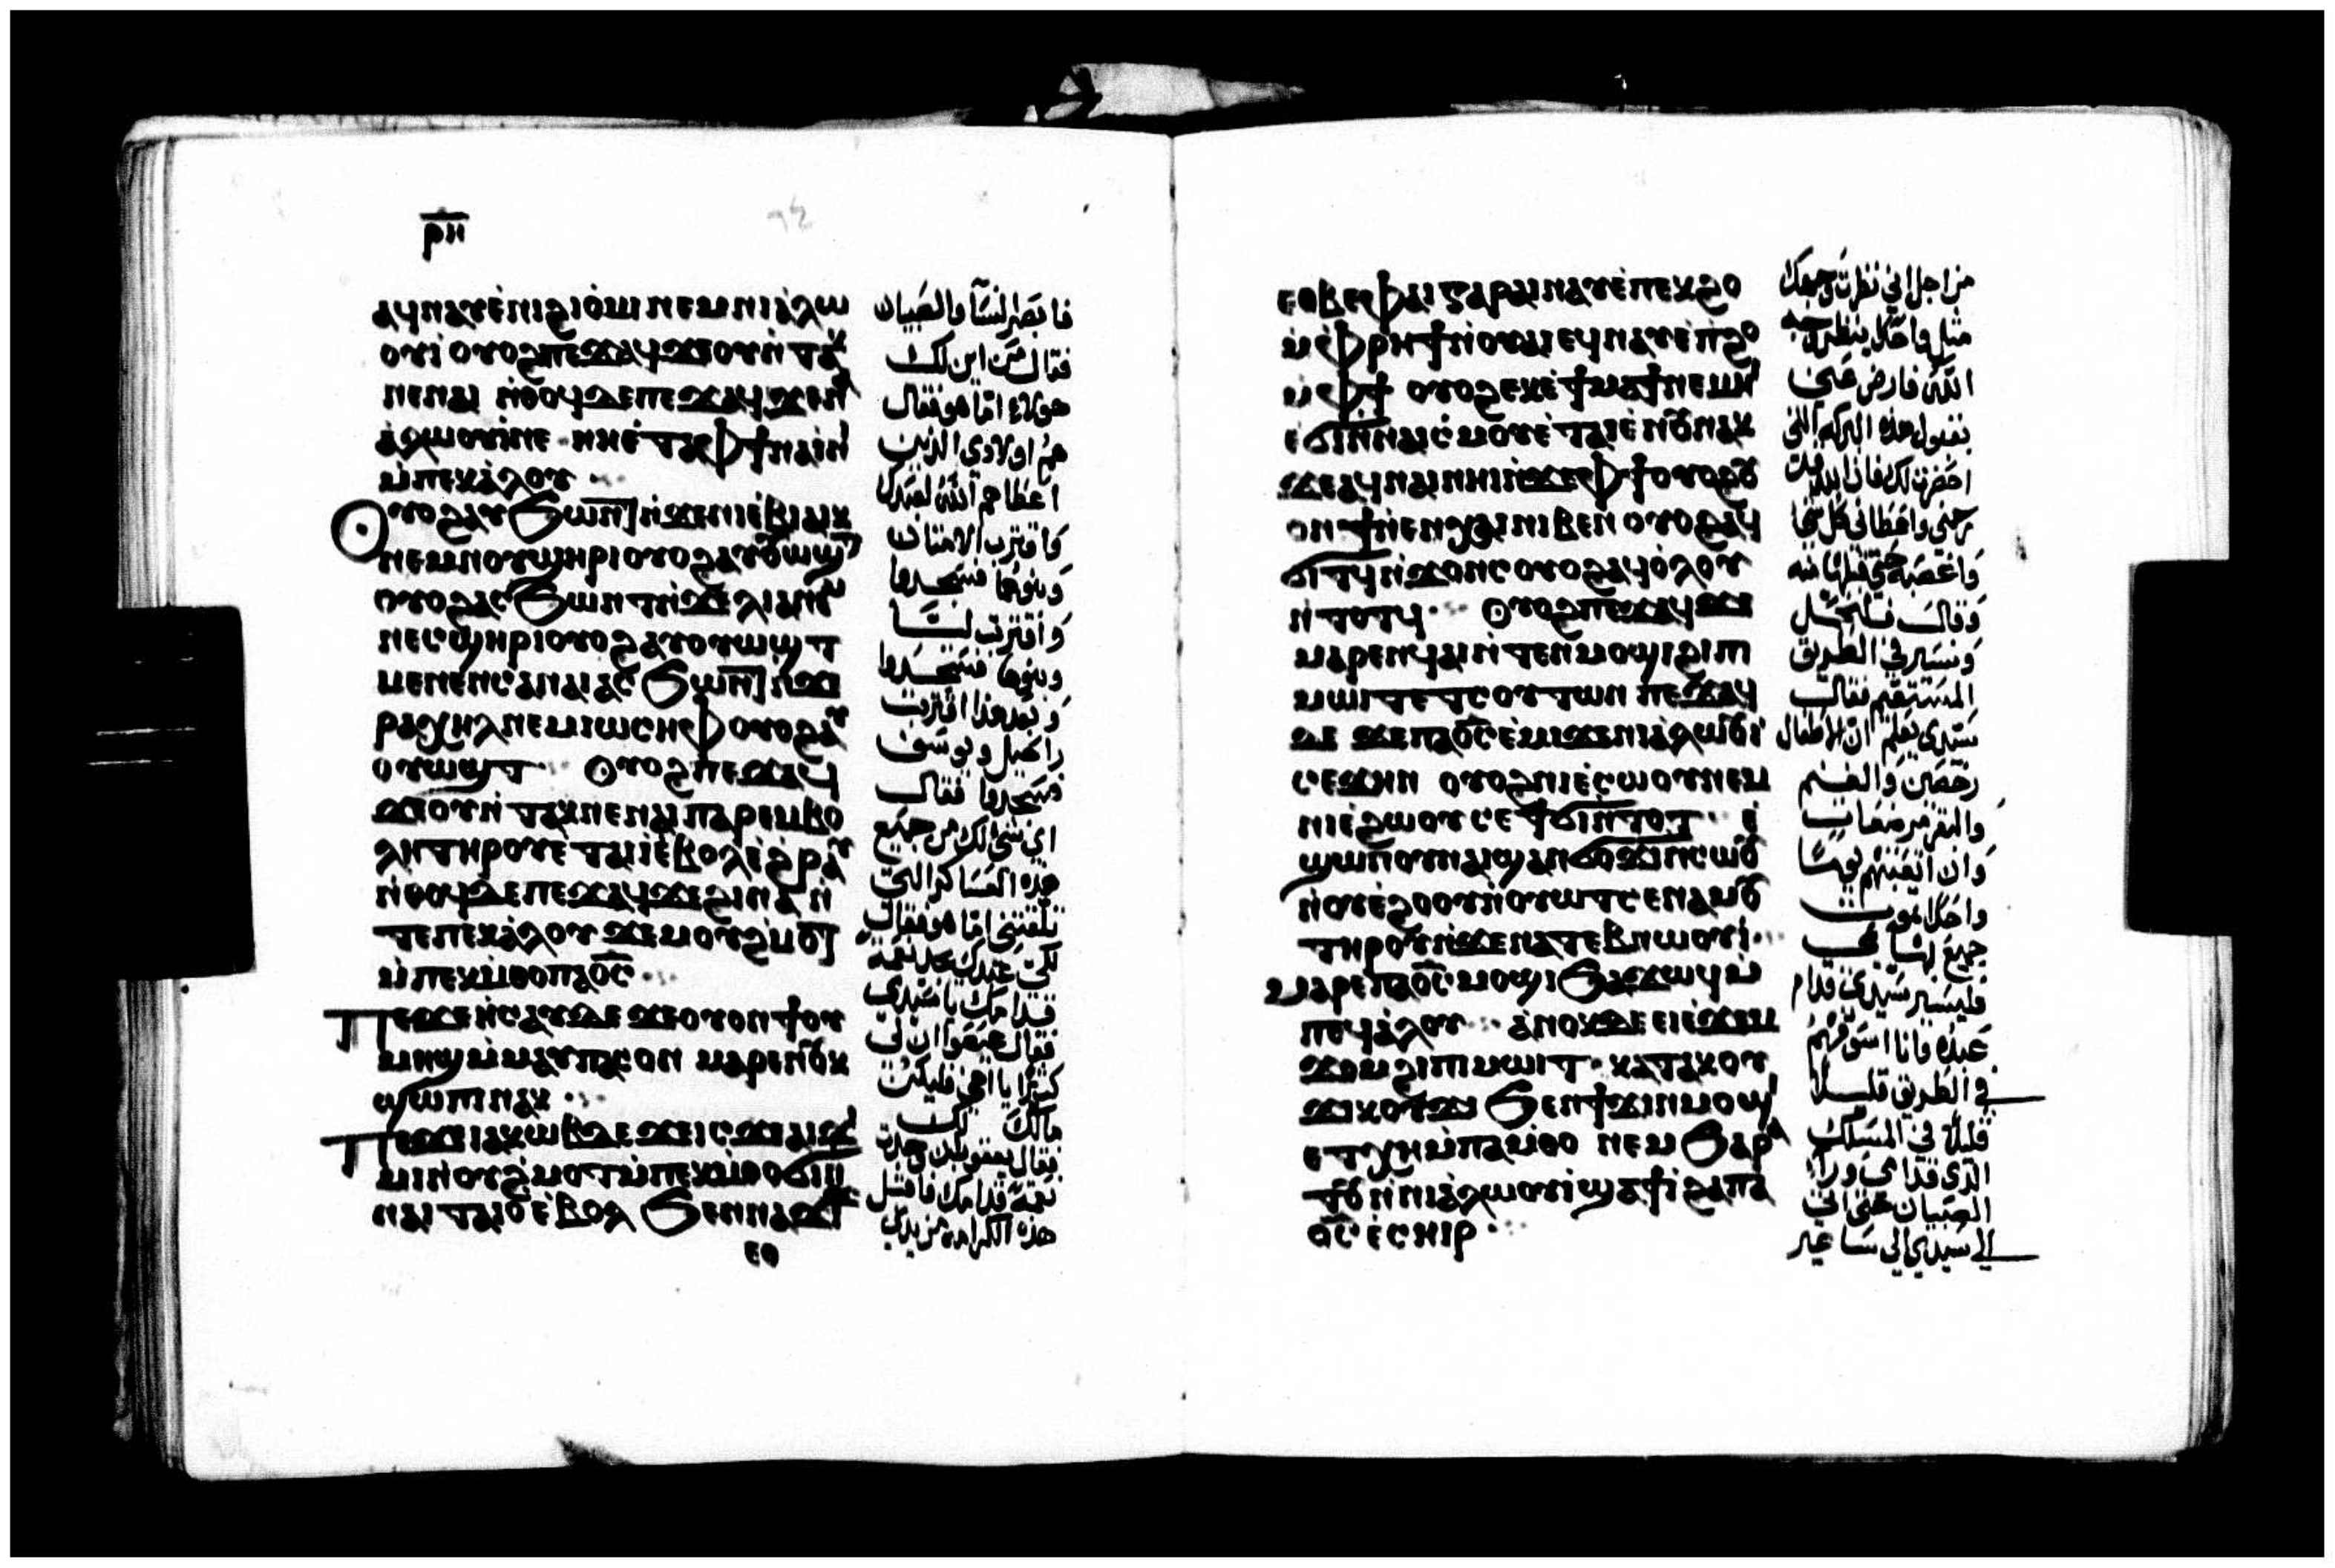 ⲣⲏ
ⲁϥⲛⲁⲩⲉ̀ⲛⲓϩⲓⲟ̀ⲙⲓ ⲛⲉⲙⲛⲓⲁ̀ⲗⲱ
ⲟⲩⲓ̀ ⲟⲩⲟϩⲡⲉϫⲁϥϫⲉⲟⲩⲛ̀ⲧⲁⲕ
ⲛⲉⲛⲁⲓ ⲛ̀ⲑⲟϥⲇⲉⲡⲉϫⲁϥϫⲉⲛⲓ
ⲁ̀ⲗⲱⲟⲩⲓ̀ⲛⲉ ⲛⲏⲉ̀ⲧⲁⲫϯⲛⲁⲓⲛ̀
ⲙ̀ⲡⲉⲕⲁ̀ⲗⲟⲩ
ⲟⲩⲟϩⲁⲩϧⲱⲛⲧ ⲛ̀ϫⲉⲛⲓⲉ̀ⲃⲓⲁⲓⲕ
ⲛⲉⲙⲛⲟⲩϣⲏⲣⲓⲟⲩⲟϩⲁⲩⲟⲩⲱϣⲧ
ⲟⲩⲟϩⲁⲥϧⲱⲛⲧⲛ̀ϫⲉⲗⲓⲁⲛⲉⲙ
ⲛⲉⲥϣⲏⲣⲓⲟⲩⲟϩⲁⲩⲟⲩⲱϣⲧ
ⲙⲉⲛⲉⲛⲥⲁⲛⲁⲓⲁⲥϧⲱⲛⲧ ⲛ̀ϫⲉ
ⲣⲁⲭⲏⲗⲛⲉⲙⲓⲱⲥⲏⲫⲟⲩⲟϩⲁⲩ
ⲟⲩⲱϣⲧ ⲟⲩⲟϩⲡⲉϫⲁϥ
ϫⲉⲟⲩⲛ̀ⲧⲁⲕⲛⲉⲛⲁⲓⲡⲁⲣⲉⲙⲃⲟ
ⲗⲏⲧⲏⲣⲟⲩⲉ̀ⲧⲁⲓⲓ̀ⲉ̀ⲃⲟⲗⲉ̀ϩⲣⲁⲩ
ⲛ̀ⲑⲟϥⲇⲉⲡⲉϫⲁϥϫⲉϩⲓⲛⲁ ⲛ̀
ⲧⲉⲡⲉⲕⲁ̀ⲗⲟⲩ ϫⲉⲙⲟⲩϩ̀ⲙⲟⲧ
ⲙ̀ⲡⲉⲕⲙ̀ⲑⲟⲡⲁⲟ̅ⲥ̅
ⲡⲉϫⲉⲏ̀ⲥⲁⲩⲇⲉ ϫⲉⲟⲩⲟⲛϯⲟⲩ
ⲙⲏϣⲙ̀ⲙⲁⲩⲡⲁⲥⲟⲛ ⲙⲁⲣⲉⲛⲟⲩⲕ
ϣⲱⲡⲓⲛⲁⲕ
ⲡⲉϫⲉⲓⲁⲕⲱⲃⲇⲉ ϫⲉⲓⲥϫⲉⲁⲓϫⲉ
ⲙⲓⲛ̀ⲟⲩϩ̀ⲙⲟⲧⲙ̀ⲡⲉⲕⲙ̀ⲑⲟϭⲓⲛ̀
ⲛⲁⲓ ⲧⲁⲓⲟ̀ ⲉ̀ⲃⲟⲗ ϧⲉⲛⲛⲁϫⲓϫ
ⲉⲑ
فابصر النسآ والصبيان
فقال من اين لك
هولاء امّا هو فقال
هم اولادى الذين
اعطاهم الله لعبدك
واقتربت الامتان
وبنوهما فسجدوا
واقتربت ليّا
وبنوها فسجدوا
وبعد هذا اقتربت
راحيل ويوسف
فسجدوا فقال
اى شى لك من جميع
هذه العساكر التى
تلقتنى امّا هو فقال
لكى عبدك يجد نعمة
قدامك ياسيدى
فقال عيصوا ان لى
كثيرا يااخى فليكن
مالك لك
فقال يعقوب ان وجدت
نعمة قدامك فاقبل
هذه الكرامة من يدى
ⲉⲑⲃⲉⲫⲁⲓⲅⲁⲣⲁⲓⲛⲁⲩⲉ̀ⲡⲉⲕϩⲟ
ⲙ̀ⲫⲣⲏϯⲛ̀ⲟⲩⲁⲓⲉϥⲛⲁⲩⲉ̀ⲡϩⲟ
ⲙ̀ⲫϯ ⲟⲩⲟϩⲉⲕⲉ̀ϯⲙⲁϯⲛⲉⲙⲏⲓ
ϭⲓⲛ̀ⲛⲁⲓⲥ̀ⲙⲟⲩⲉ̀ⲧⲁⲓⲉ̀ⲛⲟⲩⲛⲁⲕ
ϫⲉⲁϥⲛⲁⲓⲛⲏⲓⲛ̀ϫⲉⲫϯⲟⲩⲟϩⲟⲩ
ⲟⲛ ϯⲛⲉⲛⲭⲁⲓⲛⲓⲃⲉⲛ ⲟⲩⲟϩⲁϥ
ϭⲓⲧϥⲛ̀ϫⲟⲛⲥⲟⲩⲟϩⲁϥⲟ̀ⲗⲟⲩ
ⲛ̀ⲧⲟⲧϥ ⲟⲩⲟϩⲡⲉϫⲁϥϫⲉ
ⲙⲁⲣⲉⲛϥⲁⲓⲛ̀ⲧⲉⲛⲙⲟϣⲓϩⲓⲡⲓ
ⲙⲱⲓⲧⲉⲧⲥⲟⲩⲧⲱⲛ ⲡⲉϫⲁϥ
ⲇⲉ ϫⲉⲡⲁⲟ̅ⲥ̅ⲉ̀ⲙⲓϫⲉⲛⲓⲁ̀ⲗⲱⲟⲩⲓ̀
ⲥⲉϫⲏⲛ ⲟⲩⲟϩⲛⲓⲉ̀ⲥⲱⲟⲩⲛⲉⲙ
ⲛⲓⲉ̀ϩⲱⲟⲩⲥⲉϯϭⲓⲛ̀ⲧⲟⲧ ⲉ̀
ϣⲱⲡⲟⲩⲛⲁⲓϣⲁⲛϭⲟϫⲓⲛⲥⲱⲟⲩ
ⲛ̀ⲟⲩⲉ̀ϩⲟⲟⲩⲛ̀ⲟⲩⲱⲧⲥⲉⲛⲁⲙⲟⲩ
ⲧⲏⲣⲟⲩⲛ̀ϫⲉⲛⲁⲧⲉⲃⲛⲱⲟⲩⲓ̀
ⲙⲁⲣⲉⲡⲁⲟ̅ⲥ̅ⲙⲟϣⲓϧⲁϫⲱϥⲙ̀
ⲡⲉϥⲁ̀ⲗⲟⲩ ⲁ̀ⲛⲟⲕⲇⲉⲉⲓⲉ̀ϫⲉⲙ
ϫⲟⲙϩⲓⲡⲓⲙⲱⲓⲧ ⲕⲁⲧⲁⲕⲟⲩ
ϫⲓⲕⲟⲩϫⲓ ϧⲉⲛϯϫⲓⲛⲙⲟϣⲓ
ⲉⲧⲭⲏⲙ̀ⲡⲁⲙ̀ⲑⲟ ⲛⲉⲙ ϧⲁⲣⲁ
ⲧⲟⲩⲛ̀ⲛⲓⲁ̀ⲗⲱⲟⲩⲓ̀ϣⲁϯⲓ̀ϩⲁⲡⲁ
ⲟ̅ⲥ̅ ⲉ̀ⲥⲏⲓⲣ
من اجل انى نظرت وجهك
مثل واحد ينظر وجه
الله فارض عنى
بقبول هذه البركة التى
احضرت لك فان الله قد
رحمنى واعطانى كل شى
واغصبه حتى قبلها منه
وقال فلنرتحل
ونسير فى الطريق
المستقيم فقال
سيدى يعلم ان الاطفال
رخصين والغنم
والبقر مرضعات
وان اتعبتهم يومًا
واحدًا تموت
جميع بهايمى
فليسير سيدى قدام
عبده وانا اسوقهم
فى الطريق قليلا
قليلًا فى المسلك
الذى قدامى وورآء
الصبيان حتى اتى
الى سيدى الى ساعير